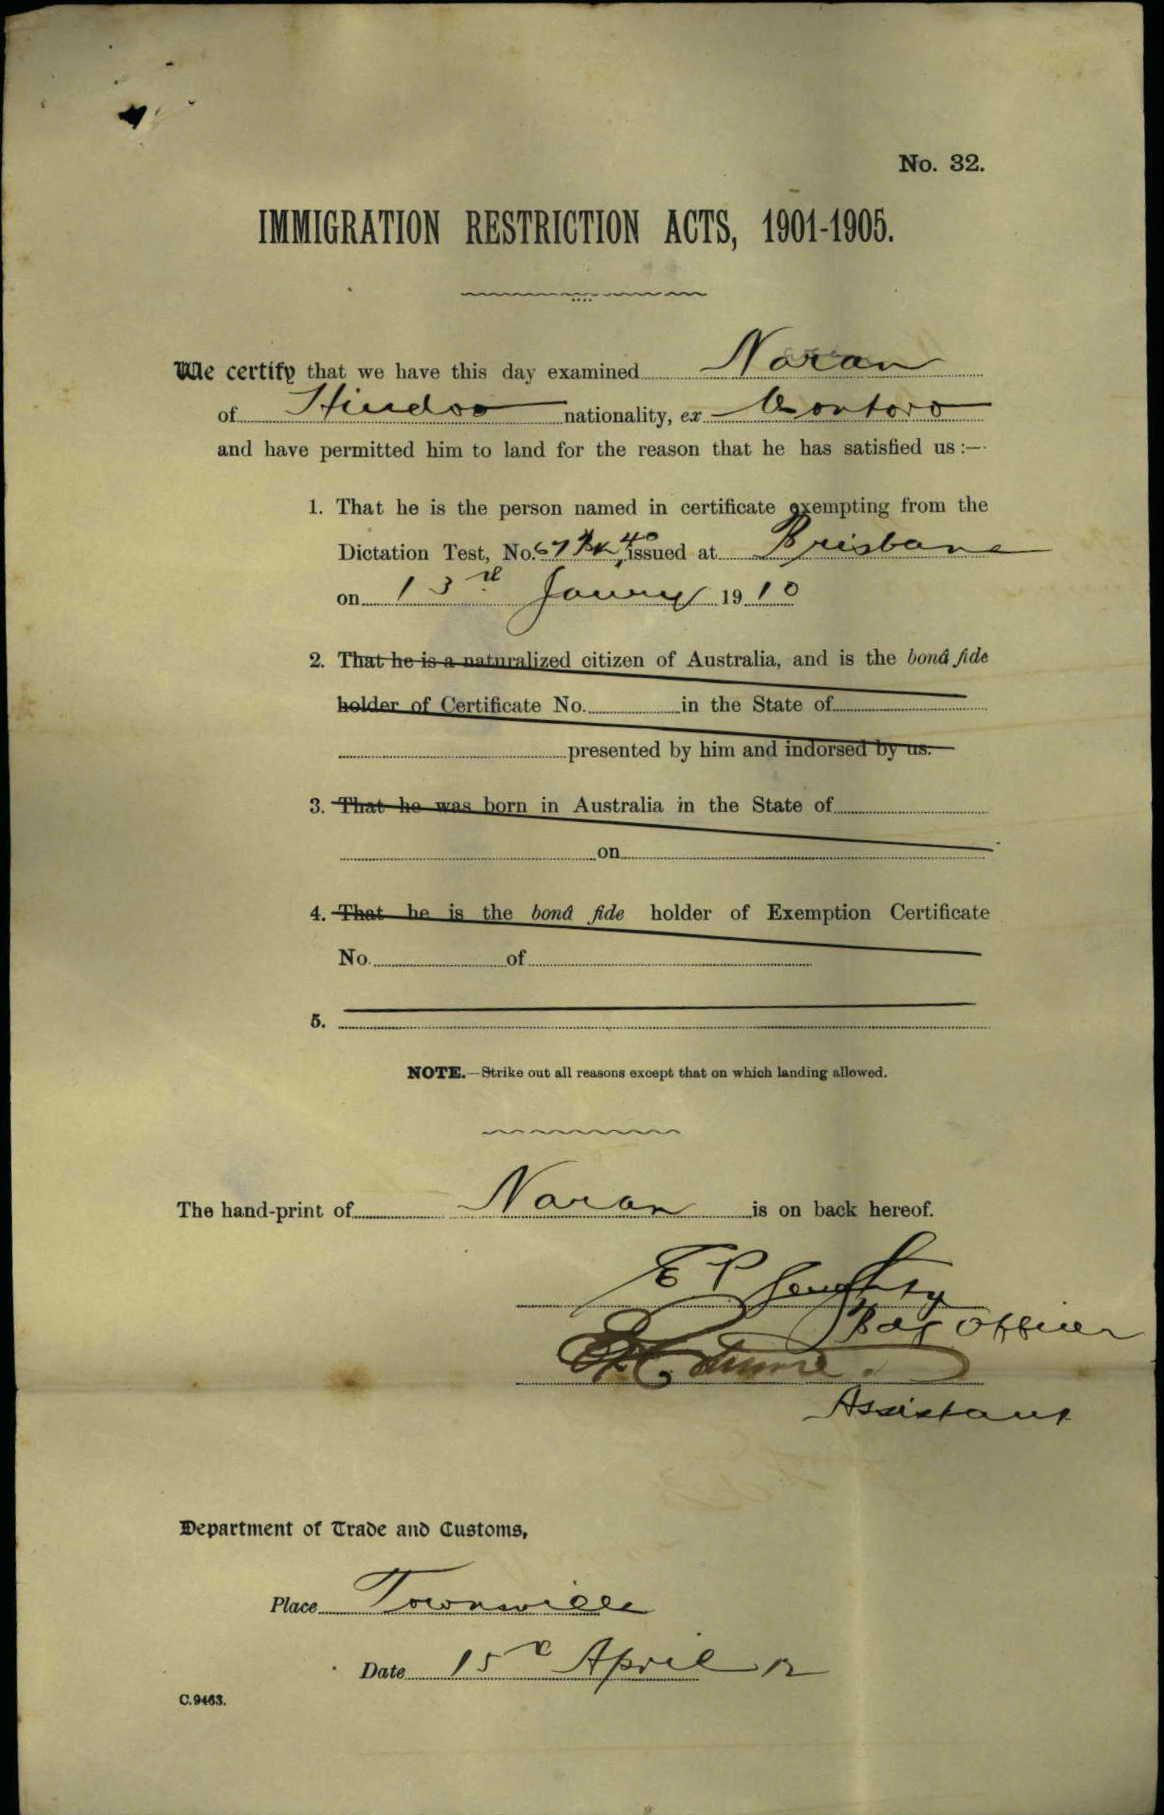 No. 32.
IMMIGRATION RESTRICTION ACTS, 1901-1905.
We certify that we have this day examined Naran
of Hindoo nationality, ex
and have permitted him to land for the reason that he has satisfied us :—
1. That he is the person named in certificate exempting from the
Dictation Test, No. 67 Bk 40, issued at Brisbane
on 13th 1910
2. That he is a naturalized citizen of Australia, and is the bonâ fide
holder of Certificate No. in the State of
presented by him and indorsed by us.
3. That he was born in Australia in the State of
on
4. That he is the bonâ fide holder of Exemption Certificate
No. of
5.
NOTE.—Strike out all reasons except that on which landing allowed.
The hand-print of Naran is on back hereof.
E P
Bdg Officer
Assistant
Department of Trade and Customs,
Place Townsville
Date 15th April 12
C.9463.